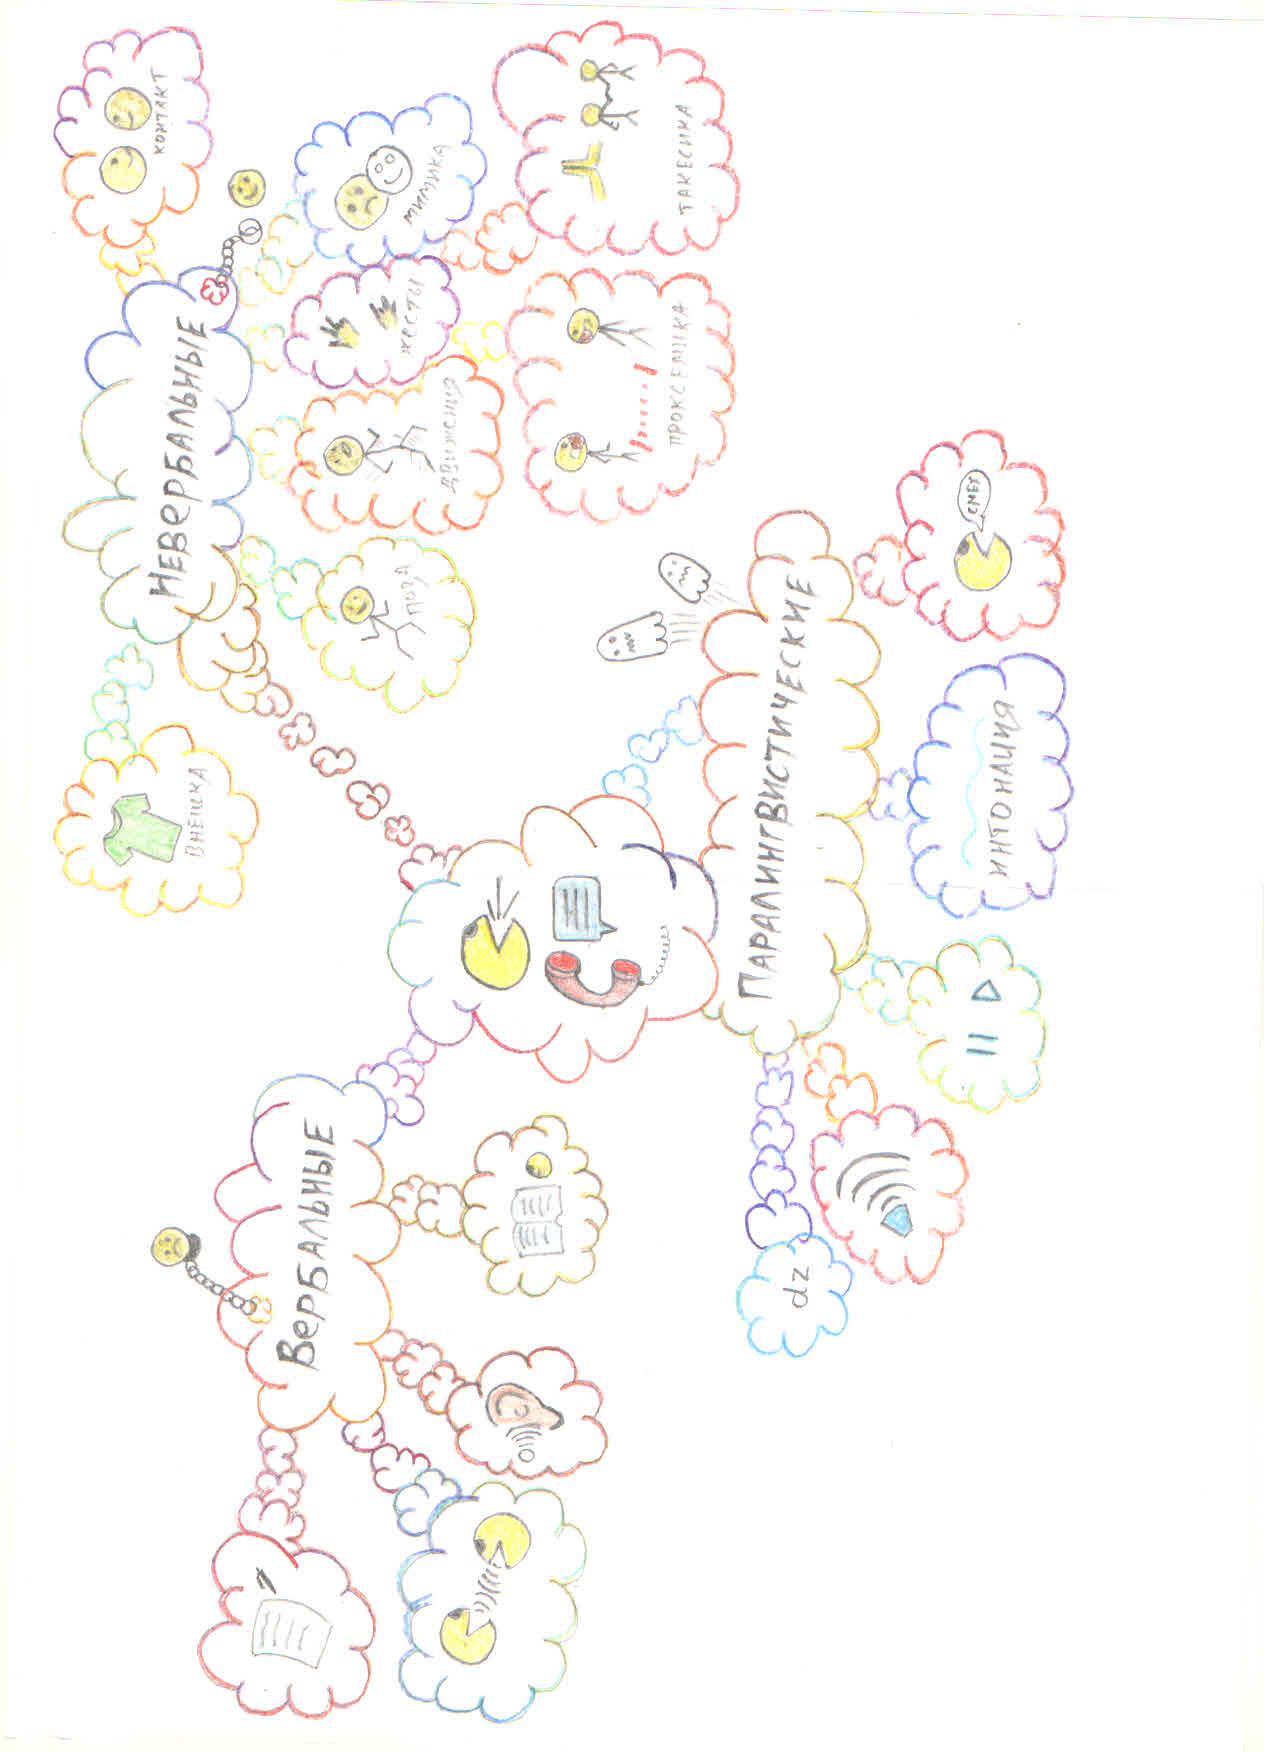 Вербальные
Невербальные
внешка
контакт
поза
движения
жесты
мимика
проксемика
такесика
Паралингвистические
dz
интонация
смех